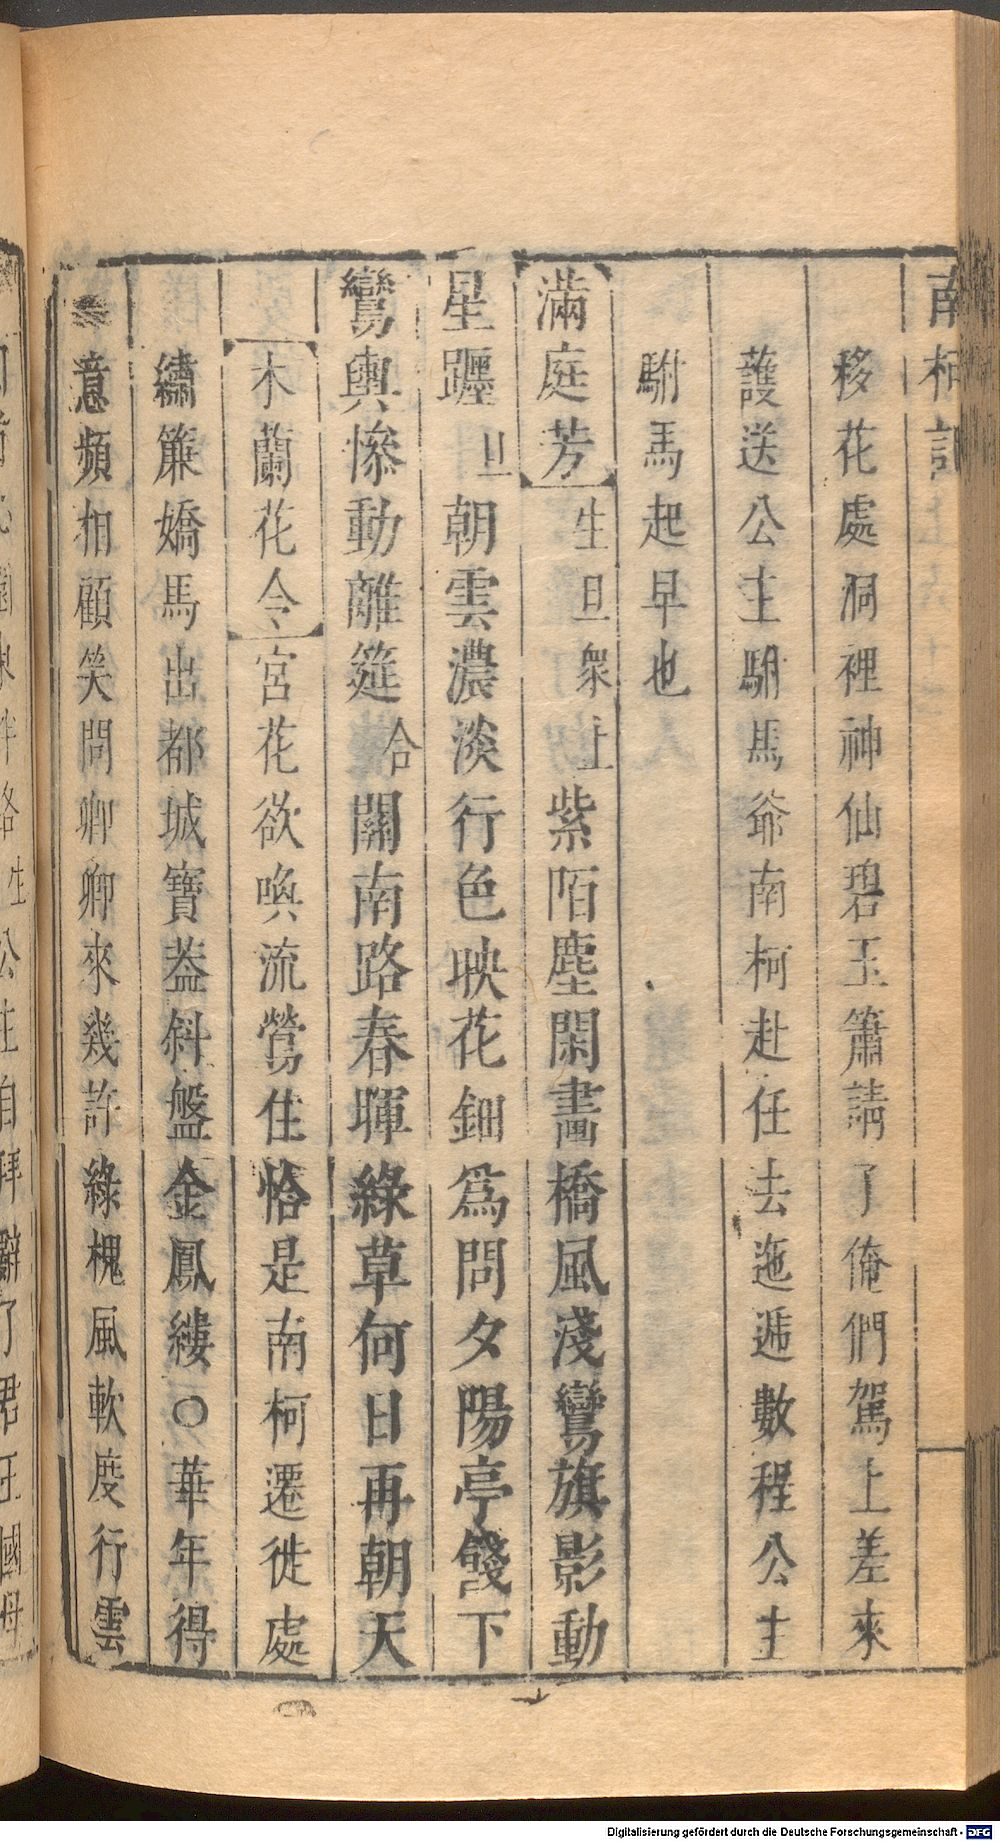 南柯記
移花處洞裡神仙碧玉簫請了俺們駕上差來
護送公主駙馬爺南柯赴任去迤逓數程公主
駙馬起早也
滿庭芳生旦衆上紫陌塵閑畫橋風淺鸞旗影動
星躔旦朝雲濃淡行色映花鈿爲問夕陽亭餞下
鸞輿慘動離筵合關南路春暉綠草何日再朝天
木蘭花令宮花欲喚流鶯住恰是南柯遷徙處
繡簾嬌馬出都城寶葢斜盤金鳳縷○華年得
意頻相顧笑問卿卿來幾許綠槐風軟度行雲
公主自拜辭了君王國母
Digitalisierung gefördert durch die Deutsche Forschungsgemeinschaft - DFG